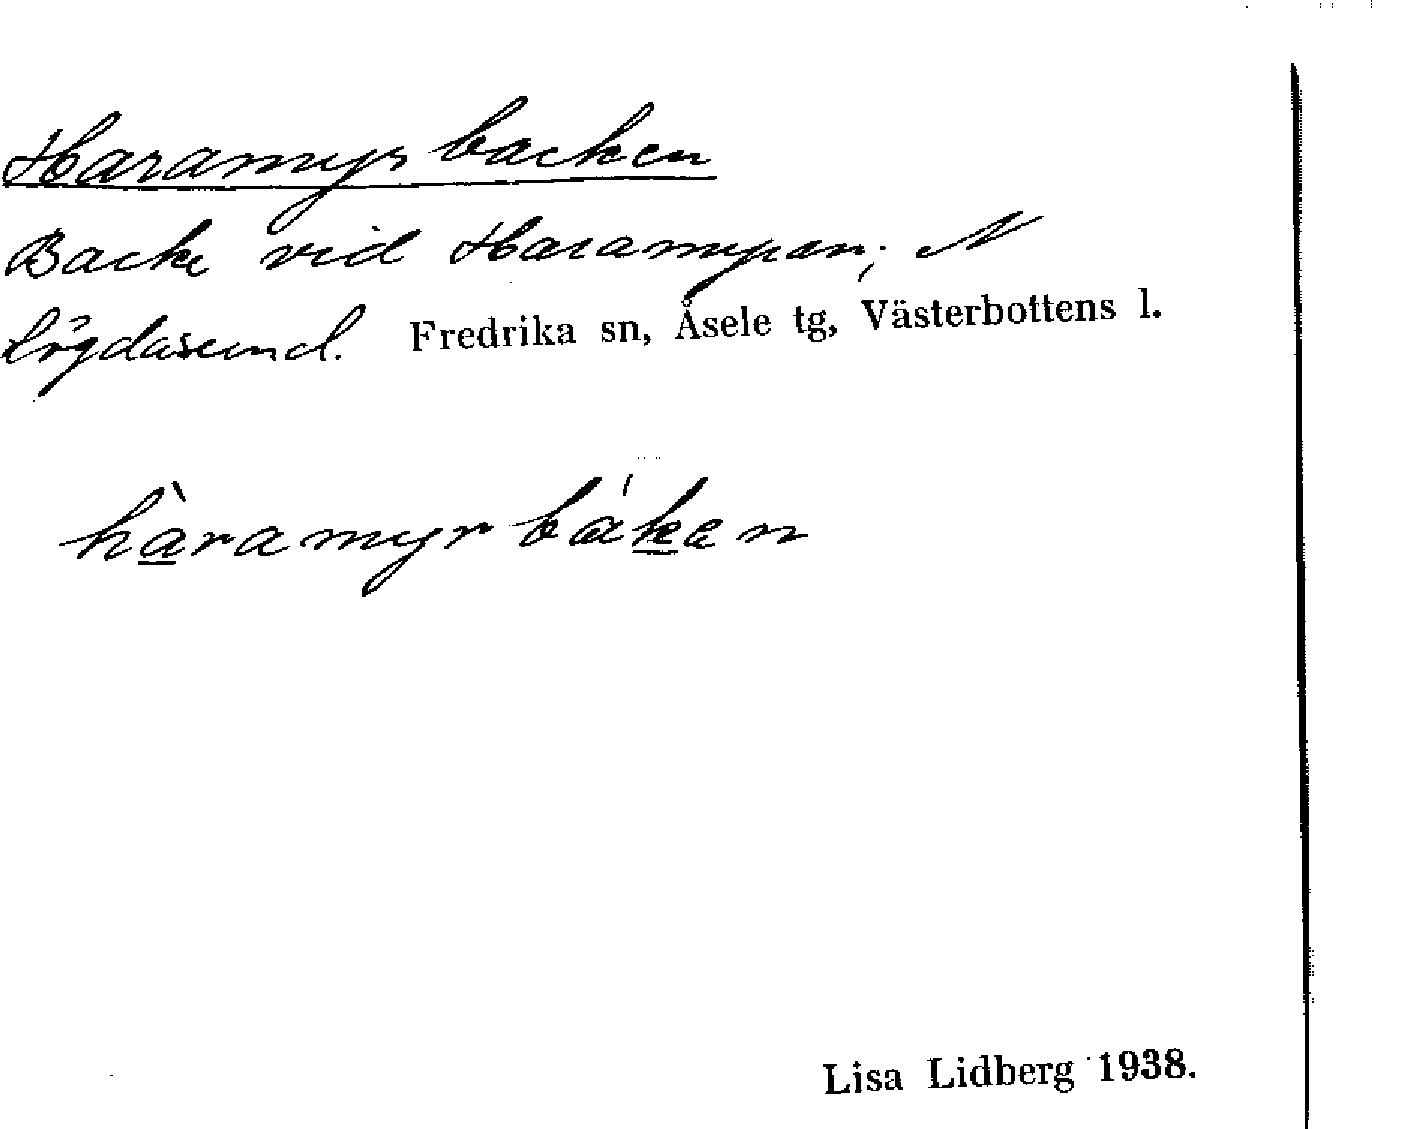 Haramyrbacken
Backe vid Haramyran; N
Lögdasund. Fredrika sn, Åsele tg, Västerbottens l.
hàramyrbáken
Lisa Lidberg 1938.